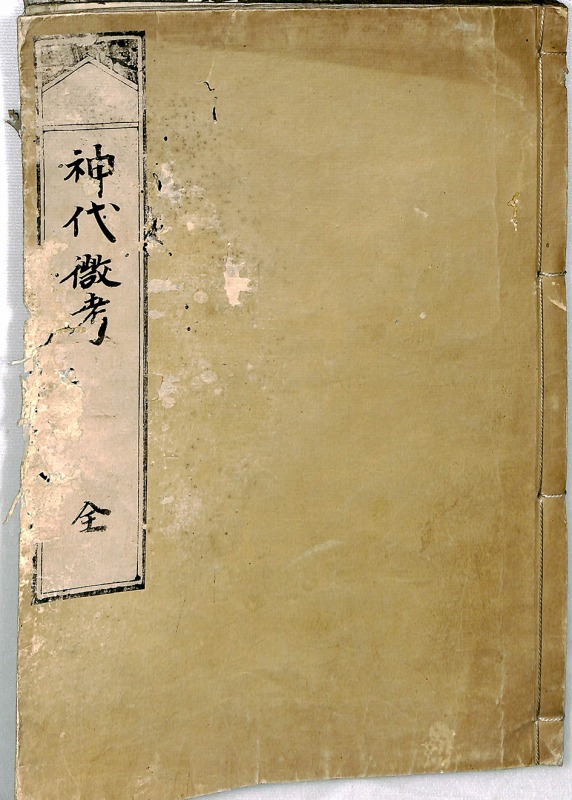 神代徴考
全